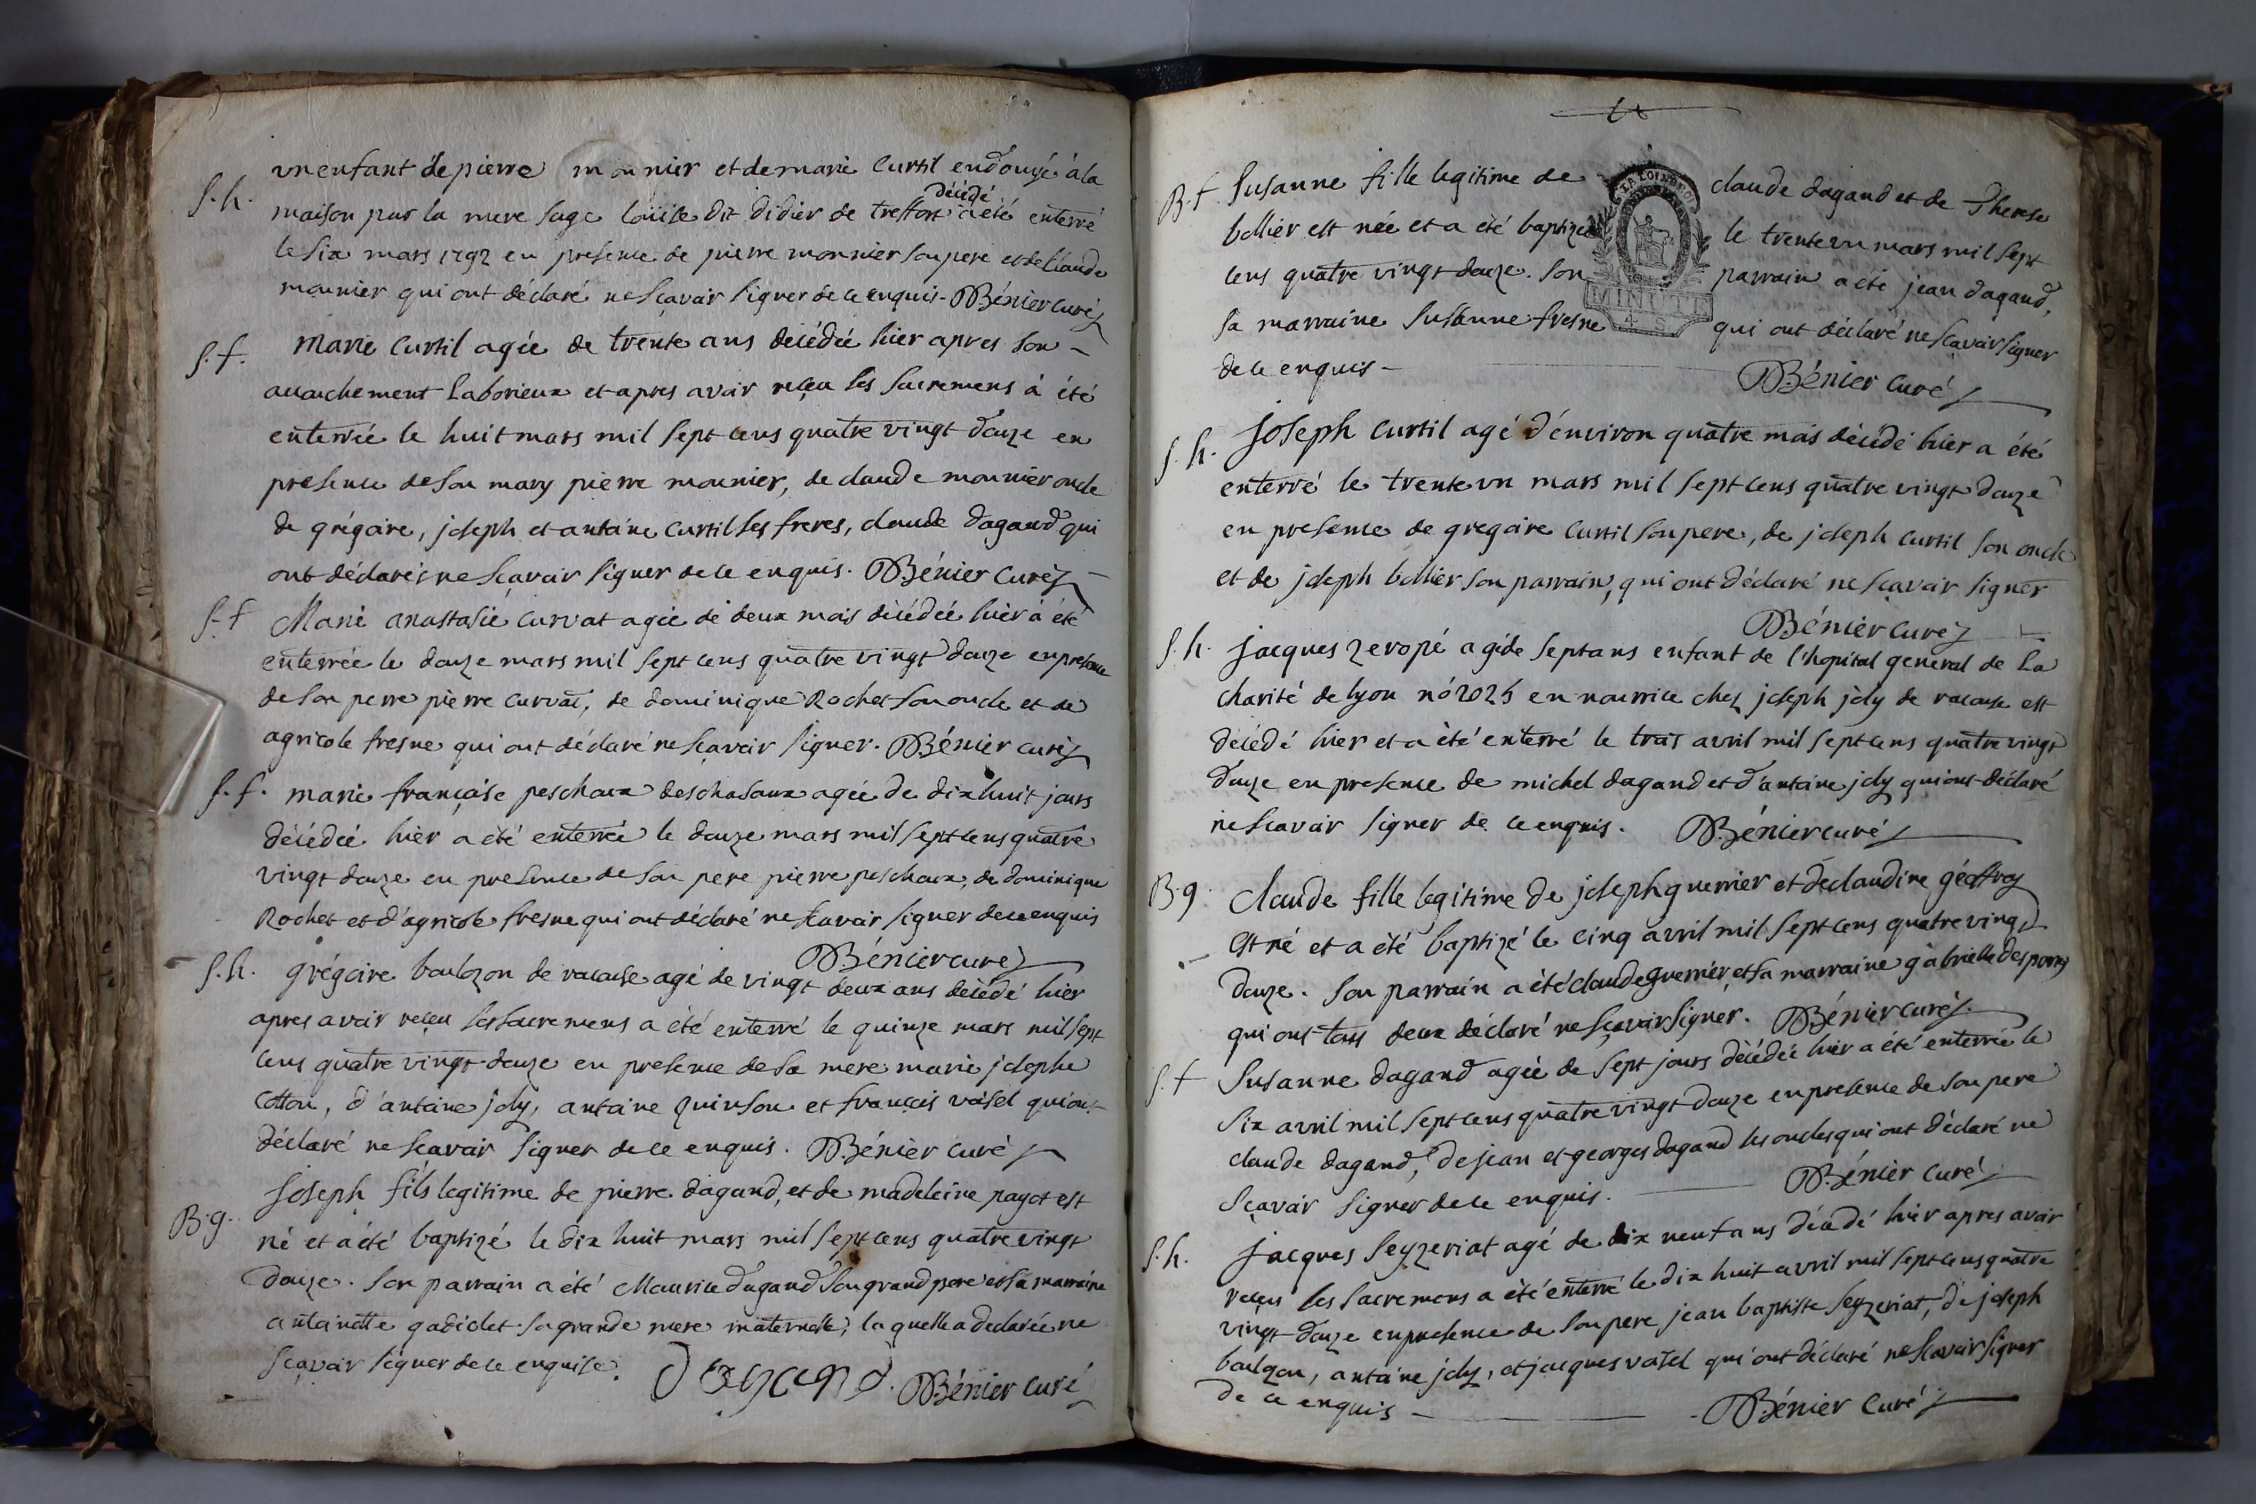 S. h. un enfant de pierre monnier et de marie Curtil endouyé à la
maison par la mere sage Loüise dit didier de treffort décédé a été enterré
le six mars 1792 en presence de pierre monnier son pere et de Claude
monnier qui ont déclaré ne sçavoir signer de ce enquis. Bénier curé
S. f. Marie Curtil agée de trente ans décédée hier apres son
accouchement laborieux et apres avoir reçeu les sacremens à été
enterrée le huit mars mil sept cens quatre vingt douze en
presence de son mary pierre monnier, de claude monnier oncle
de grégoire, joseph et antoine Curtil ses freres, claude dagand qui
ont déclarés ne sçavoir signer de ce enquis. Bénier curé
S. f Marie anastasie curvat agée de deux mois décédée hier à été
enterrée le douze mars mil sept cens quatre vingt douze en presence
de son perre pierre curvat, de dominique Rochet son oncle et de
agricole fresne qui ont déclaré ne sçavoir signer. Bénier curé
S. f. marie françoise peschoux deschasaux agée de dix huit jours
décédée hier a été enterrée le douze mars mil sept cens quatre
vingt douze en presence de son pere pierre peschoux, de dominique
Rochet et d'agricole fresne qui ont déclaré ne sçavoir signer de ce enquis
Bénier curé
S. h. grégoire boulozon de racouse agé de vingt deux ans décédé hier
apres avoir reçeu les sacremens a été enterré le quinze mars mil sept
cens quatre vingt douze en presence de sa mere marie josephe
Cotton, d'antoine joly, antoine quinson et françois vatel qui ont
déclaré ne scavoir signer de ce enquis. Bénier curé
B. g. Joseph fils legitime de pierre dagand, et de madeleine payot est
né et a été baptizé le dix huit mars mil sept cens quatre vingt
douze. Son parrain a été Maurice dagand son grand pere et sa marraine
antoinette gadiolet sa grande mere maternelle, la quelle a declarée ne
sçavoir signer de ce enquise. Dagand. Bénier curé
B. f Susanne fille legitime de claude dagand et de Therese
bollier est née et a été baptizée le trente un mars mil sept
cens quatre vingt douze. Son parrain a été jean dagand,
sa marraine Susanne fresne qui ont déclaré ne sçavoir signer
de ce enquis
LA LOI
MINUTE
4 S
Bénier curé
S. h. Joseph Curtil agé d'environ quatre mois décédé hier a été
enterré le trente un mars mil sept cens quatre vingt douze
en presence de gregoire Curtil son pere, de joseph Curtil son oncle
et de joseph bollier son parrain, qui ont déclaré ne sçavoir signer
Bénier curé
S. h. jacques zeropé agé de sept ans enfant de l'hopital general de la
charité de lyon nó 2025 en nourrice chez joseph joly de racouse est
décédé hier et a été enterré le trois avril mil sept cens quatre vingt
douze en presence de michel dagand et d'antoine joly qui ont déclaré
ne scavoir signer de ce enquis. Bénier curé
B. g. Claude fille legitime de joseph guerrier et de claudine géoffray
est né et a été baptizé le cinq avril mil sept cens quatre vingt
douze. Son parrain a été claude guerrier et sa marraine gabrielle desporres
qui ont tous deux déclaré ne sçavoir signer. Bénier curé
S. f Susanne dagand agée de sept jours décédée hier a été enterrée le
six avril mil sept cens quatre vingt douze en presence de son pere
claude dagand, de jean et georges dagand ses oncles qui ont déclaré ne
sçavoir signer de ce enquis. Bénier curé
S. h. jacques seyzeriat agé de dix neuf ans décédé hier apres avoir
reçeu les sacremens a été enterré le dix huit avril mil sept cens quatre
vingt douze en presence de son pere jean baptiste seyzeriat, de joseph
boulozon, antoine joly, et jacques vatel qui ont déclaré ne scavoir signer
de ce enquis Bénier curé